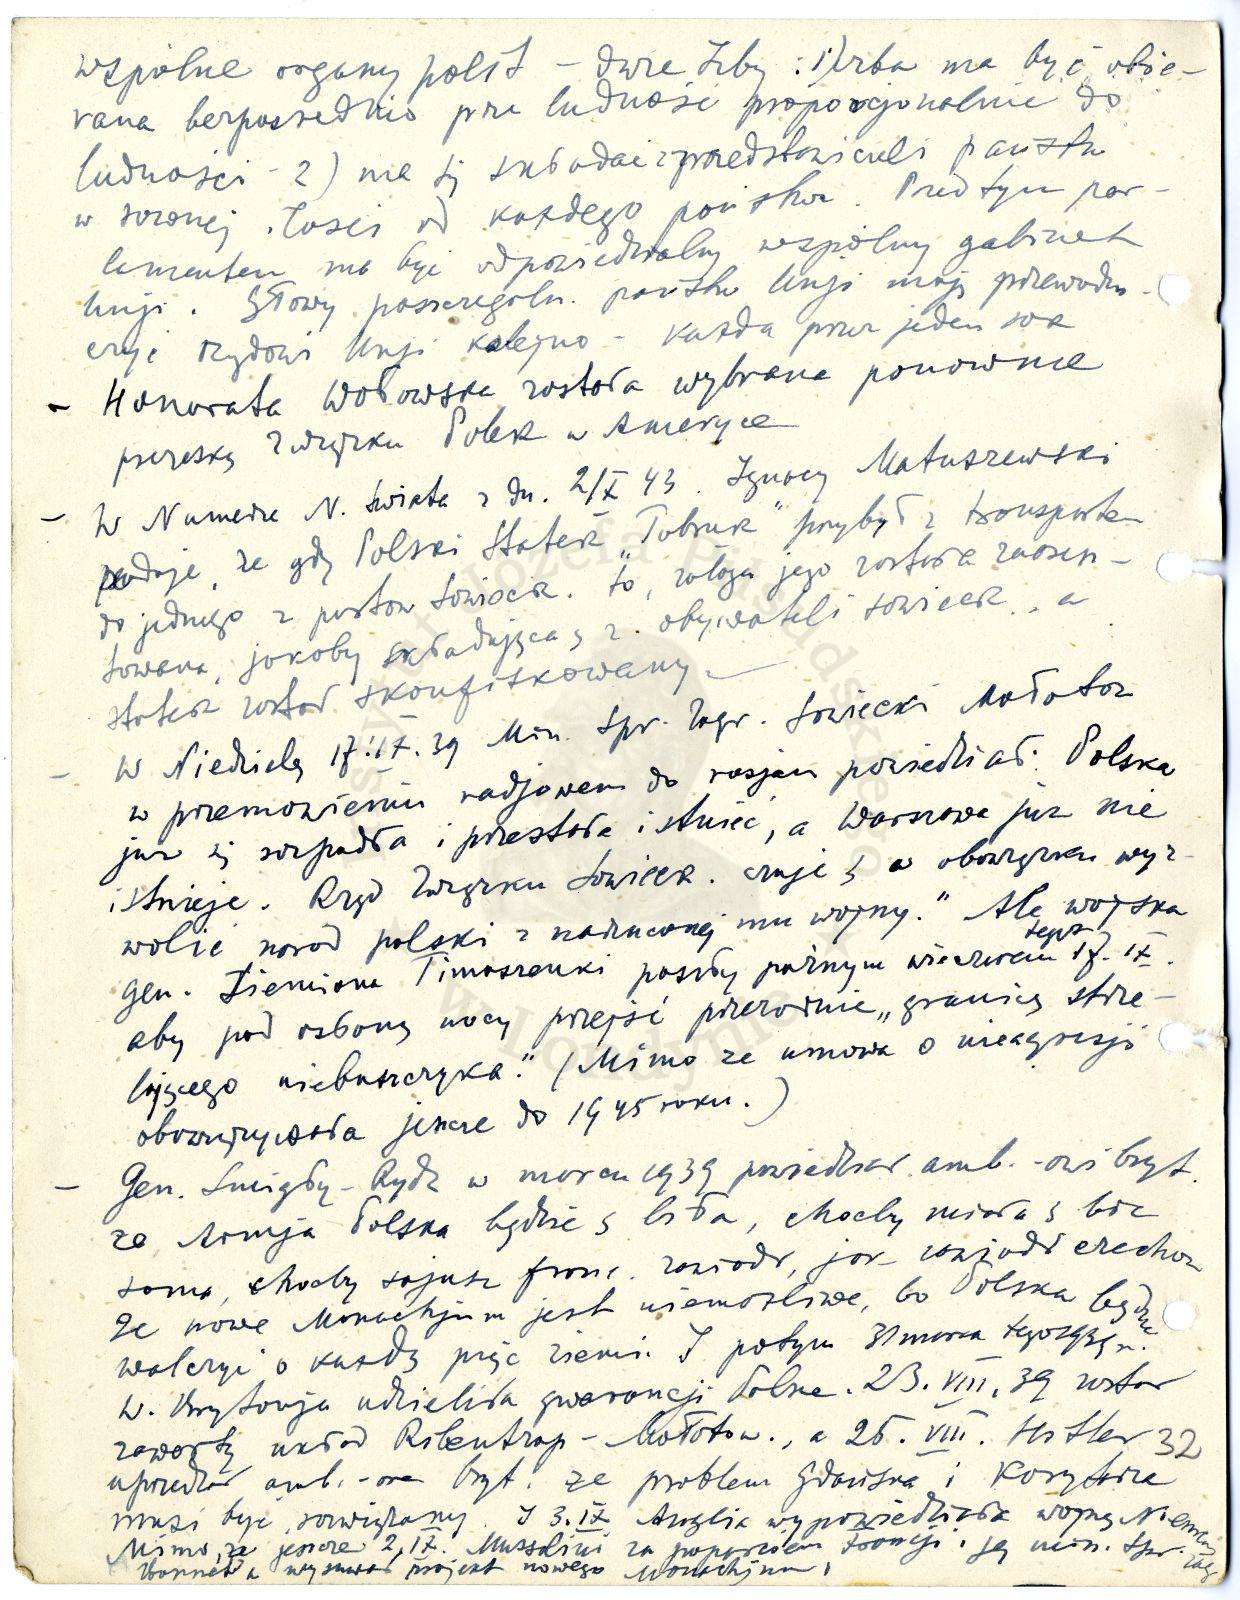 wspólne organy państ – dwie Izby: 1) izba ma być obie-
rana bezposrednio prze ludność proporcjonalnie do
ludności – 2) ma się składać z przedstawicieli państw
w równej ilości od każdego państwa. Przed tym par-
lamentem ma być odpowiedzialny wspólny gabinet
Unji. Głowy poszczególn. państw Unji mają przewodn-
czyć rządowi Unji kolejno – każda przez jeden rok
– Honorata Wołowska została wybrana ponownie
prezeską Związku Polek w Ameryce
– W Numerze N. Świata z dn. 2/X 43. Ignacy Matuszewski
podaje, że gdy Polski Statek „Tobruk" przybył z transportem
do jednego z portów Sowieck. to, załoga jego została zaresz-
towana, jakoby składająca się z obywateli sowieck., a
statek został skonfiskowany. –
– W Niedzielę 17.IX.39 Min. Spr. Zagr. Sowiecki Mołotow
w przemówieniu radjowem do rosjan powiedział: Polska
już się rozpadła i przestała istnieć, a Warszawa już nie
istnieje. Rząd Związku Sowieck. czuje się w obowiązku wyz-
wolić naród polski z narzuconej mu wojny." Ale wojska
gen. Ziemiona Timoszenki poszły późnym wieczorem tegoż 17.IX.
aby pod osłoną nocy przejść przezornie „granicę strze-
lającego niebuszczyka." (Mimo że umowa o nieagresji
obowiązywała jeszcze do 1945 roku.)
– Gen. Śmigły-Rydz w marcu 1939 powiedział amb.-owi bryt.
że Armja Polska będzie się biła, choćby miała się bić
sama, choćby sojusz franc. zawiódł, jak zawiódł Czechów
że nowe Monachjum jest niemożliwe, bo Polska będzie
walczyć o każdą piędź ziemi. I potym 31 marca tegoż
W. Brytanja udzieliła gwarancji Polsce. 23.VIII.39 został
zawarty układ Ribentrop – Mołotow., a 25.VIII. Hitler 32
uprzedził amb.-ora bryt. że problem Gdańska i Korytarza
musi być rozwiązany. I 3.IX Anglia wypowiedziała wojnę Niemcom
Mimo, że jeszcze 2.IX. Mussolini za poparciem Francji i jej min. Spr. Zagr
Bonnet'a wysuwał projekt nowego Monachjum.